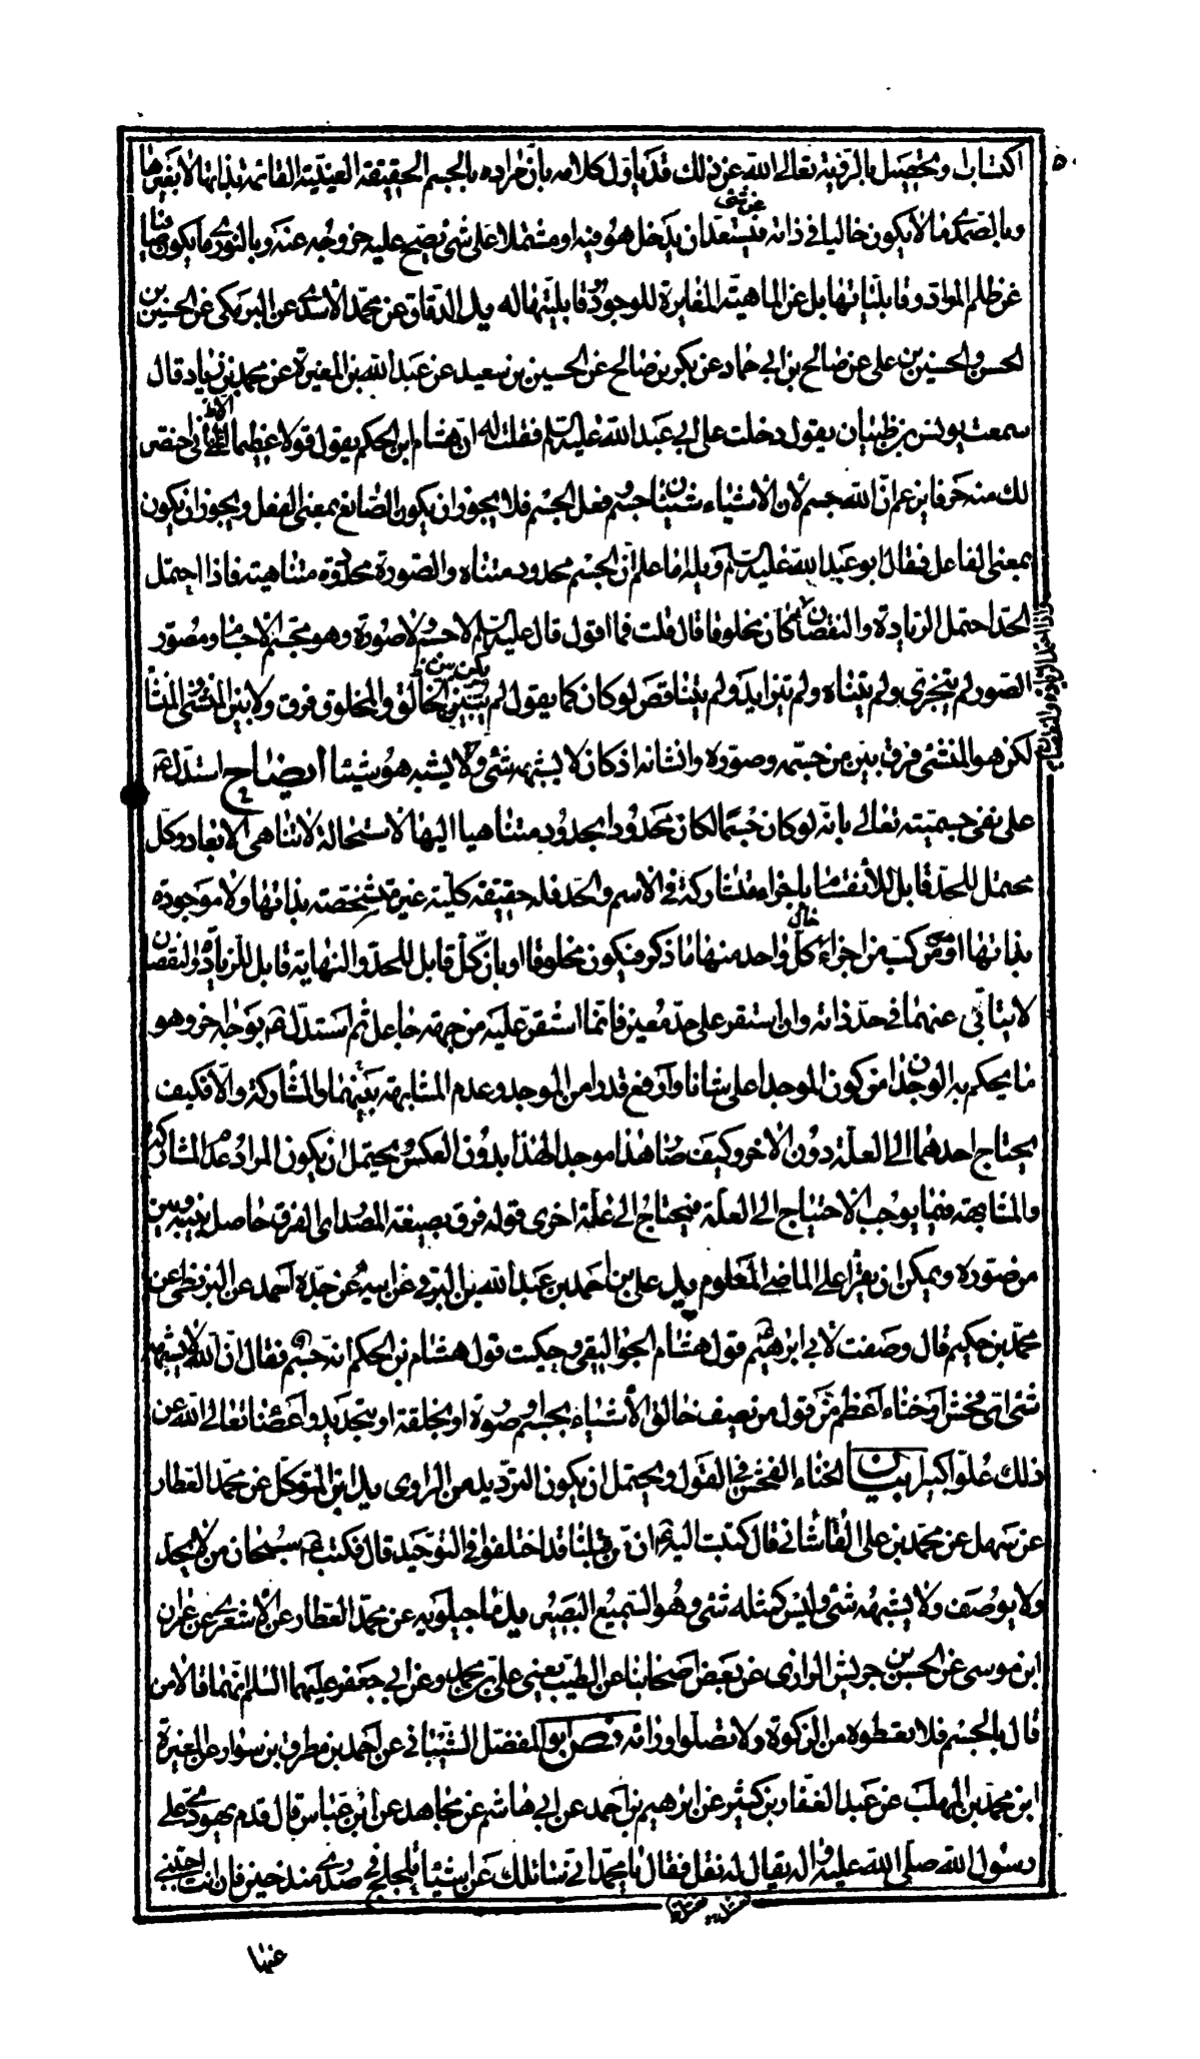 اكتساب وتحصيل بالروية تعالى الله عن ذلك قد يأول كلامه بأن مراده بالجسم الحقيقة العينية القائمة بذاتها لا بغيرها
وبالصمدي ما لا يكون خاليا في ذاته عن شئ فيستعد ان يدخل هو فيه او مشتملا على شئ يصح عليه خروجه عنه وبالنوري ما يكون صافيا
عن ظلم المواد وقابلياتها بل عن الماهية المغايرة للوجود وقابليتها له يد الدقاق عن محمد الأسدي عن البرمكي عن الحسين بن
الحسن والحسين بن علي عن صالح بن ابي حماد عن بكر بن صالح عن الحسين بن سعيد عن عبد الله بن المغيرة عن محمد بن زياد قال
سمعت يونس بن ظبيان يقول دخلت على ابي عبد الله عليه السلم فقلت له ان هشام ابن الحكم يقول قولا عظيما الا اني اختصر
لك منه حرفا يزعم ان الله جسم لأن الاشياء شيئان جسم وفعل الجسم فلا يجوز ان يكون الصانع بمعنى الفعل ويجوز ان يكون
بمعنى الفاعل فقال ابو عبد الله عليه السلم ويله اما علم أن الجسم محدود متناه والصورة محدودة متناهية فاذا احتمل
الحد احتمل الزيادة والنقصان
واذا احتمل الزيادة والنقصان
كان مخلوقا قال قلت فما اقول قال عليه السلم لا جسم ولا صورة وهو مجسم الاجسام ومصور
الصور لم يتجزى ولم يتناه ولم يتزايد ولم يتناقص لو كان كما يقول لم يكن بين الخالق والمخلوق فرق ولا بين المنشئ والمنشأ
لكن هو المنشئ فرق بين من جسمه وصوره وانشاه اذ كان لا يشبهه شئ ولا يشبه هو شيئا ايضاح استدل ع
على نفي جسميته تعالى بانه لو كان جسما لكان محدودا بحدود متناهيا اليها لاستحالة لا تناهي الابعاد وكل
محتمل للحد قابل للانقسام بأجزاء متشاركة في الاسم والحد فله حقيقة كلية غير متشخصة بذاتها ولا موجودة
بذاتها او هو مركب من اجزاء حال كل واحد منها ما ذكر فيكون مخلوقا او بان كل قابل للحد والنهاية قابل للزيادة والنقصان
لا يتأبى عنهما في حد ذاته وان استقر على حد معين فانما استقر عليه من جهة جاعل ثم استدل ع بوجه اخر وهو
ما يحكم به الوجدان من كون الموجد اعلى شانا وارفع قدرا من الموجد وعدم المشابهة بينهما والمشاركة والا فكيف
يحتاج احدهما الى العلة دون الاخر وكيف صار هذا موجدا لهذا بدون العكس ويحتمل ان يكون المراد عدم المشاركة
والمشابهة فيما يوجب الاحتياج الى العلة فيحتاج الى علة اخرى قوله فرق بصيغة المصدر اي الفرق حاصل بينه وبين
من صوره ويمكن ان يقرأ على الماضي المعلوم يد علي بن احمد بن عبد الله بن البرقي عن ابيه عن جده احمد عن البزنطي عن
محمد بن حكيم قال وصفت لأبي ابرهيم ع قول هشام الجواليقي وحكيت قول هشام بن الحكم انه جسم فقال ان الله لا يشبهه
شئ اي فحش او خناء اعظم من قول من يصف خالق الأشياء بجسم او صورة او بخلقة او بتحديد واعضاء تعالى الله عن
ذلك علوا كبيرا بيان الخناء الفحش في القول ويحتمل ان يكون الترديد من الراوي يد ابن المتوكل عن محمد العطار
عن سهل عن محمد بن علي القاشاني قال كتبت اليه ع ان من قبلنا قد اختلفوا في التوحيد قال فكتب ع سبحان من لا يحد
ولا يوصف ولا يشبهه شئ وليس كمثله شئ وهو السميع البصير يد ماجيلويه عن محمد العطار عن الاشعري عن عمران
ابن موسى عن الحسن بن جريش الرازي عن بعض اصحابنا عن الطيب يعني علي بن محمد وعن ابي جعفر عليهما السلم انهما قالا من
قال بالجسم فلا تعطوه من الزكوة ولا تصلوا ورائه نص ابو المفضل الشيباني عن احمد بن مطرق بن سوار عن المغيرة
ابن محمد بن المهلب عن عبد الغفار بن كثير عن ابرهيم بن احمد عن ابي هاشم عن مجاهد عن ابن عباس قال قدم يهودي على
رسول الله صلى الله عليه واله يقال له نعثل فقال يا محمد اني سائلك عن اشياء تلجلج في صدري منذ حين فان انت اجبتني
عنها